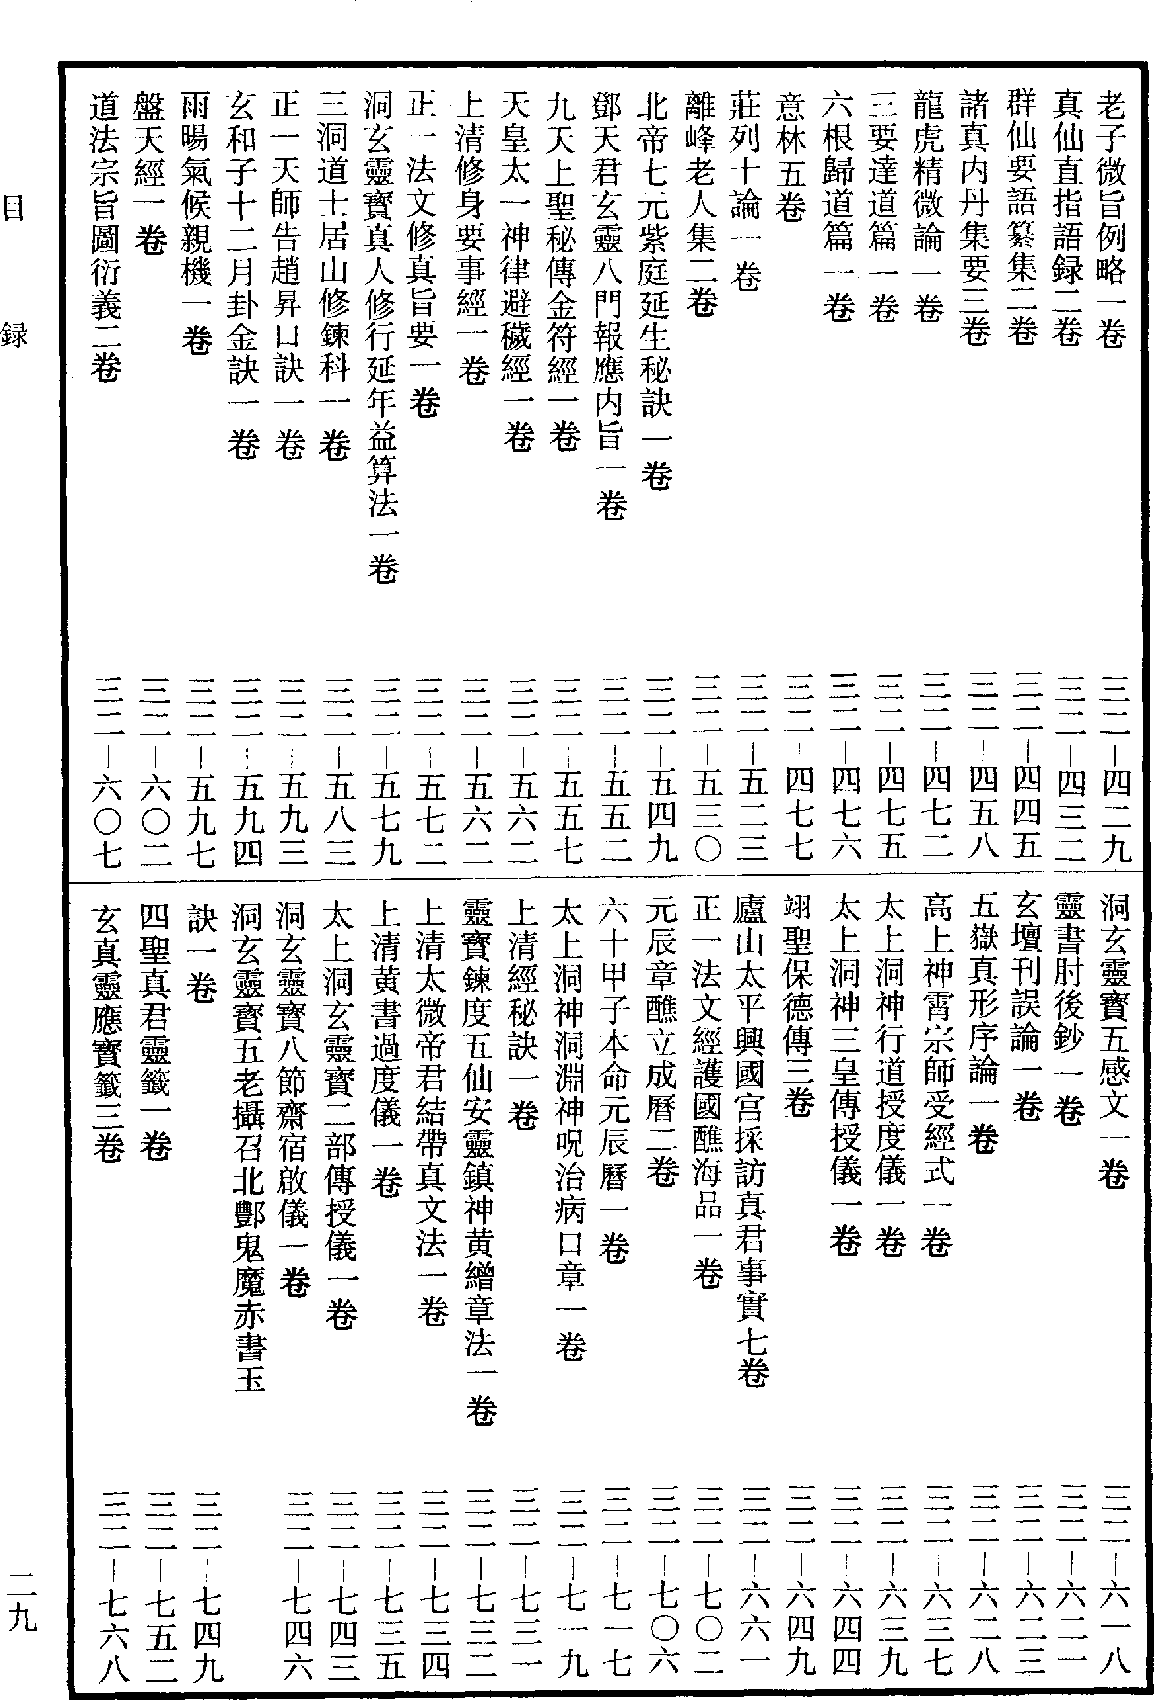 老子微旨例略一卷 三二—四二九
真仙直指語録二卷 三二—四三二
群仙要語纂集二卷 三二—四四五
諸真内丹集要三卷 三二—四五八
龍虎精微論一卷 三二—四七二
三要達道篇一卷 三二—四七五
六根歸道篇一卷 三二—四七六
意林五卷 三二—四七七
莊列十論一卷 三二—五二三
離峰老人集二卷 三二—五三〇
北帝七元紫庭延生秘訣一卷 三二—五四九
鄧天君玄靈八門報應内旨一卷 三二—五五二
九天上聖秘傳金符經一卷 三二—五五七
天皇太一神律避穢經一卷 三二—五六二
上清修身要事經一卷 三二—五六二
正一法文修真旨要一卷 三二—五七二
洞玄靈寶真人修行延年益算法一卷 三二—五七九
三洞道士居山修鍊科一卷 三二—五八三
正一天師告趙昇口訣一卷 三二—五九三
玄和子十二月卦金訣一卷 三二—五九四
雨暘氣候親機一卷 三二—五九七
盤天經一卷 三二—六〇二
道法宗旨圖衍義二卷 三二—六〇七
洞玄靈寶五感文一卷 三二—六一八
靈書肘後鈔一卷 三二—六二一
玄壇刊誤論一卷 三二—六二三
五嶽真形序論一卷 三二—六二八
高上神霄宗師受經式一卷 三二—六三七
太上洞神行道授度儀一卷 三二—六三九
太上洞神三皇傳授儀一卷 三二—六四四
翊聖保德傳三卷 三二—六四九
廬山太平興國宫採訪真君事實七卷 三二—六六一
正一法文經護國醮海品一卷 三二—七〇二
元辰章醮立成曆二卷 三二—七〇六
六十甲子本命元辰曆一卷 三二—七一七
太上洞神洞淵神呪治病口章一卷 三二—七一九
上清經秘訣一卷 三二—七三一
靈寶鍊度五仙安靈鎮神黄繒章法一卷 三二—七三二
上清太微帝君結帶真文法一卷 三二—七三四
上清黄書過度儀一卷 三二—七三五
太上洞玄靈寶二部傳授儀一卷 三二—七四三
洞玄靈寶八節齋宿啟儀一卷 三二—七四六
洞玄靈寶五老攝召北酆鬼魔赤書玉
訣一卷 三二—七四九
四聖真君靈籤一卷 三二—七五二
玄真靈應寶籤三卷 三二—七六八
目録
二九